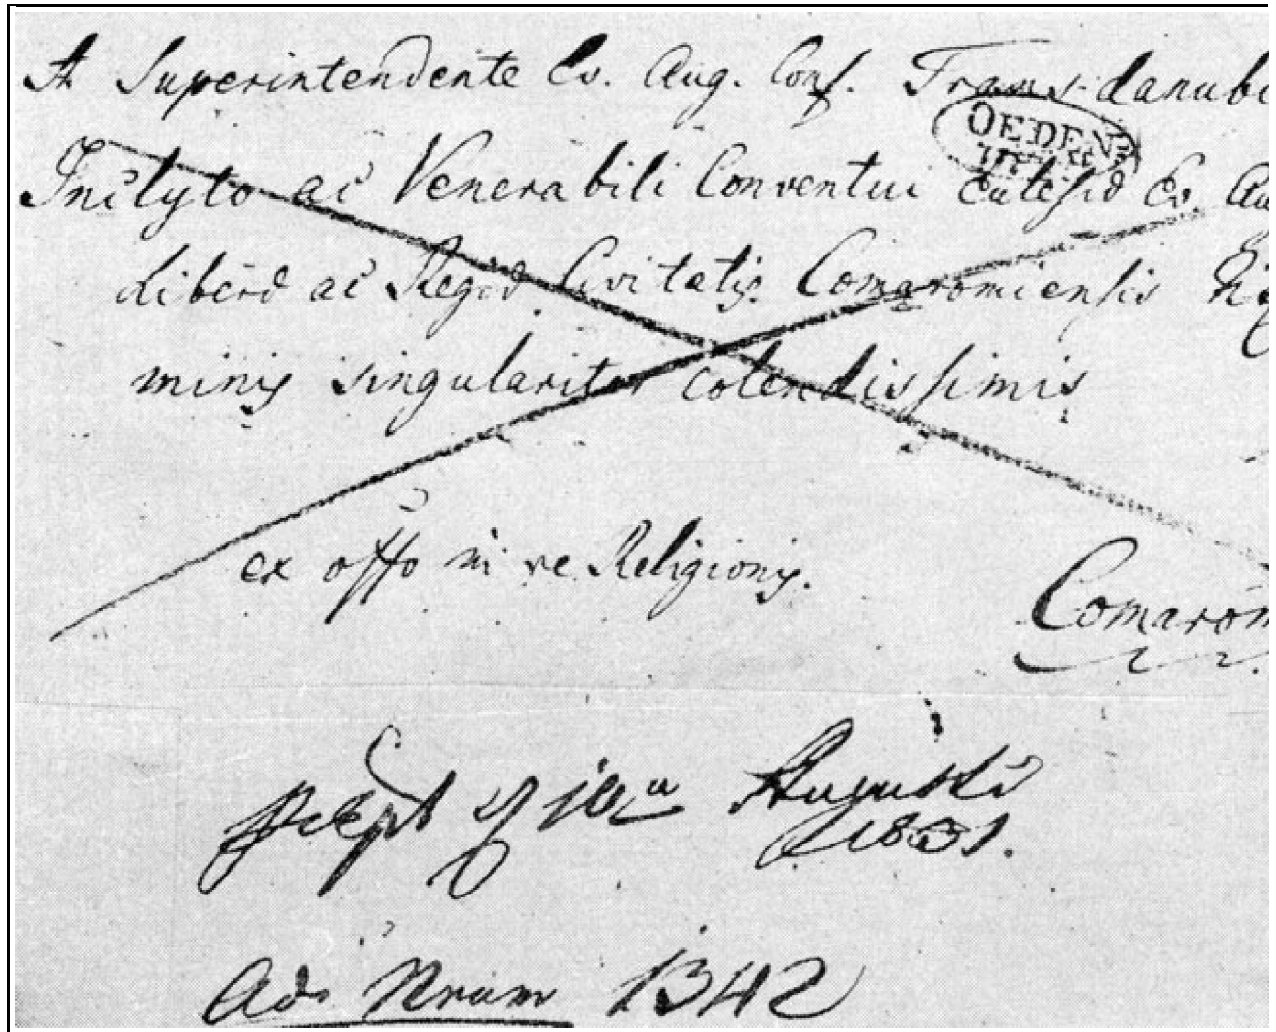 A Superintendente Ev. Aug. Conf. Trans-danubi
OEDEN
Inclyto ac Venerabili Conventui Ev. Au
Liberæ ac Regiæ Civitatis Comaromiensis
minis singulariter colendissimis
ex offo in re Religionis.
Comarom
Augusti
1831.
Ad Nrum 1342